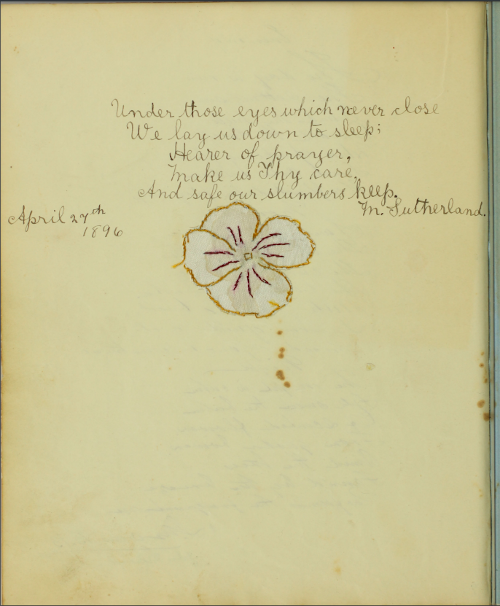 Under those eyes which never close
We lay us down to sleep;
Hearer of prayer,
make us Thy care,
And safe our slumbers keep.
M. Sutherland.
April 27th
1896